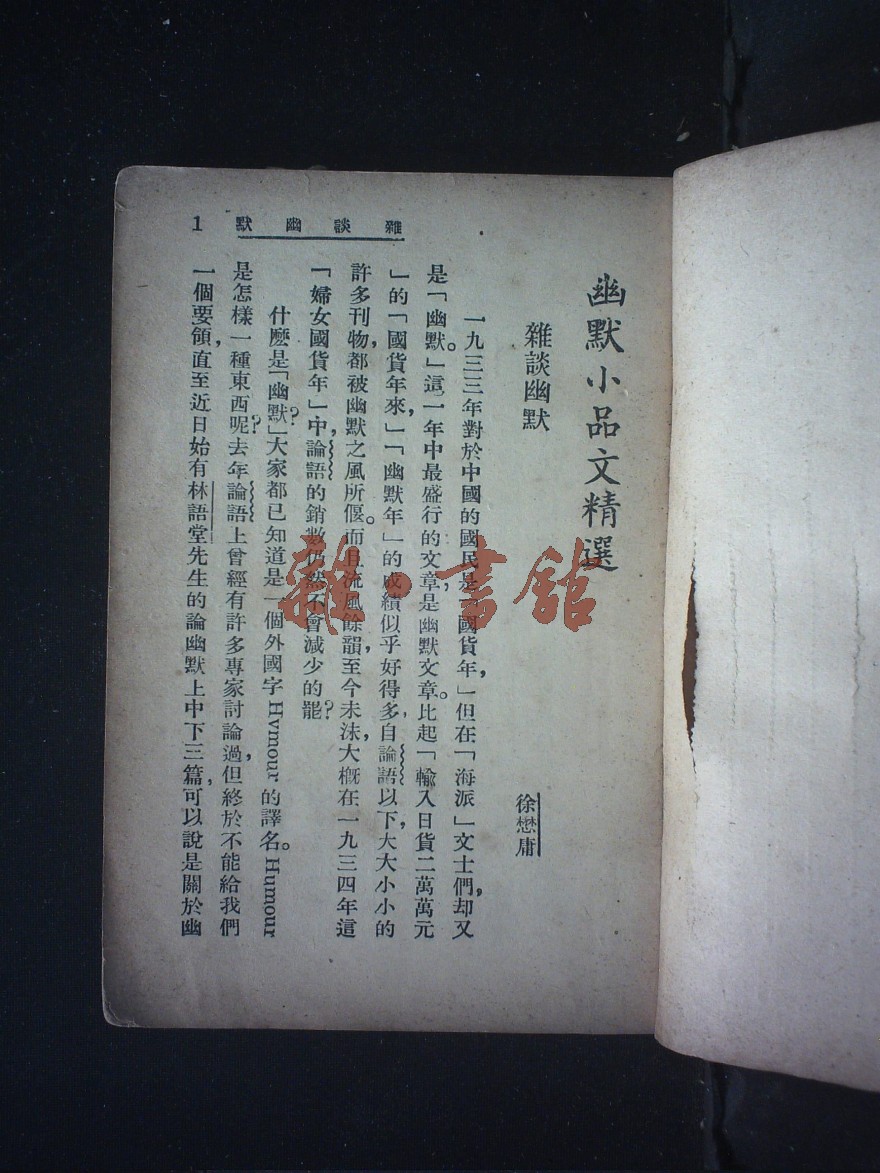 幽默小品文精選
雜談幽默
徐懋庸
一九三三年對於中國的國民是「國貨年，」但在「海派」文士們，却又
是「幽默」。這一年中最盛行的文章，是幽默文章。比起「輸入日貨二萬萬元
」的「國貨年來，」「幽默年」的成績似乎好得多，自論語以下，大大小小的
許多刊物，都被幽默之風所偃。而且流風餘韻，至今未沫，大概在一九三四年這
「婦女國貨年」中，論語的銷數仍然不會減少的罷？
什麽是「幽默」？大家都已知道是一個外國字 Hvmour 的譯名。Humour
是怎樣一種東西呢？去年論語上曾經有許多專家討論過，但終於不能給我們
一個要領，直至近日始有林語堂先生的論幽默上中下三篇，可以說是關於幽
雜談幽默 1
雜·書館